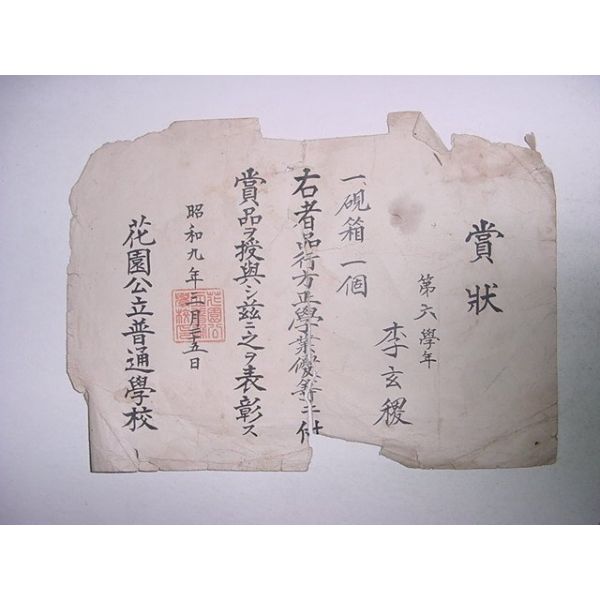 賞狀
第六學年
李玄稷
一、硯箱一個
右者品行方正學業優等ニ付
賞品ヲ授與シ玆ニ之ヲ表彰ス
昭和九年三月二十五日
花園公立普通學校